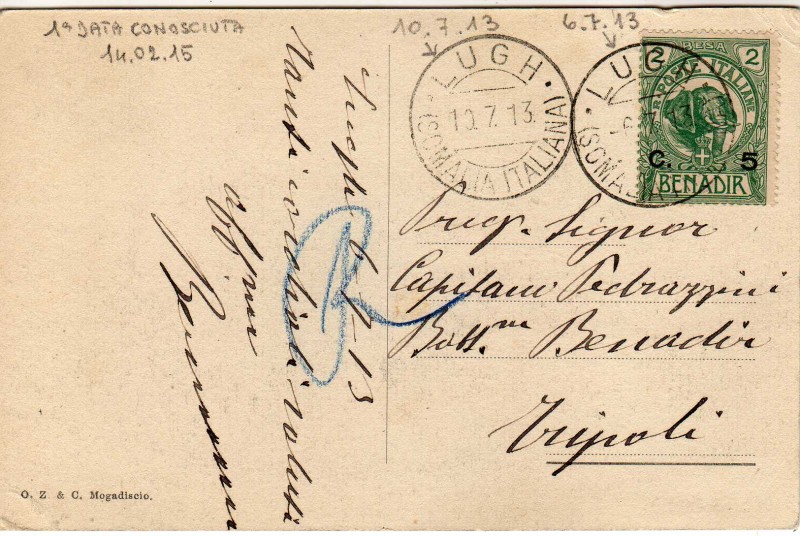 1ª DATA CONOSCIUTA
14.02.15
10.7.13
6.7.13
LUGH
10.7.13
(SOMALIA ITALIANA)
LUG
-6.7.13
(SOMALIA
2 BESA 2
POSTE ITALIANE
C. 5
BENADIR
Lugh 6-7-13
Tanti cordiali saluti
aff.mo
Preg. Signor
Capitano Pedrazzini
Batt.ne Benadir
Tripoli
O. Z. & C. Mogadiscio.